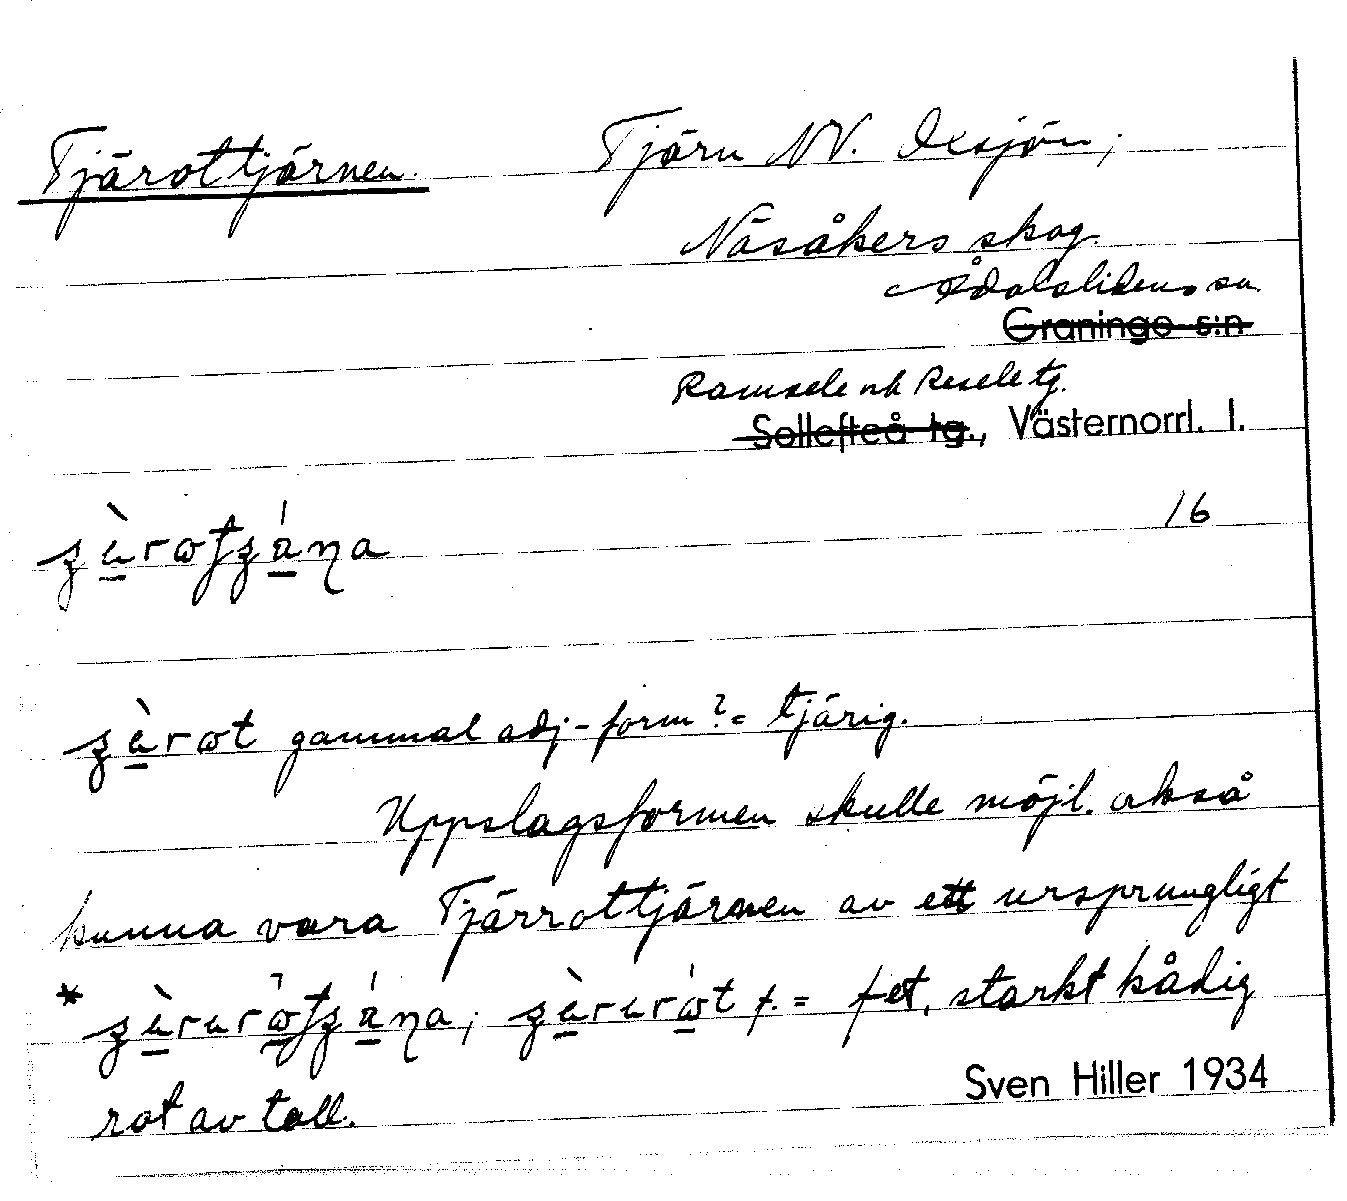 Tjärottjärnen. Tjärn NV. Oxsjön;
Näsåkers skog.
Ådalslidens sn.
Graninge s:n
Ramsele och Resele tg.
Sollefteå tg., Västernorrl. l.
16
gammal adj-form? = tjärig.
Uppslagsformen skulle möjl. också
kunna vara Tjärrottjärnen av ett ursprungligt
f. = fet, starkt kådig
rot av tall.
Sven Hiller 1934